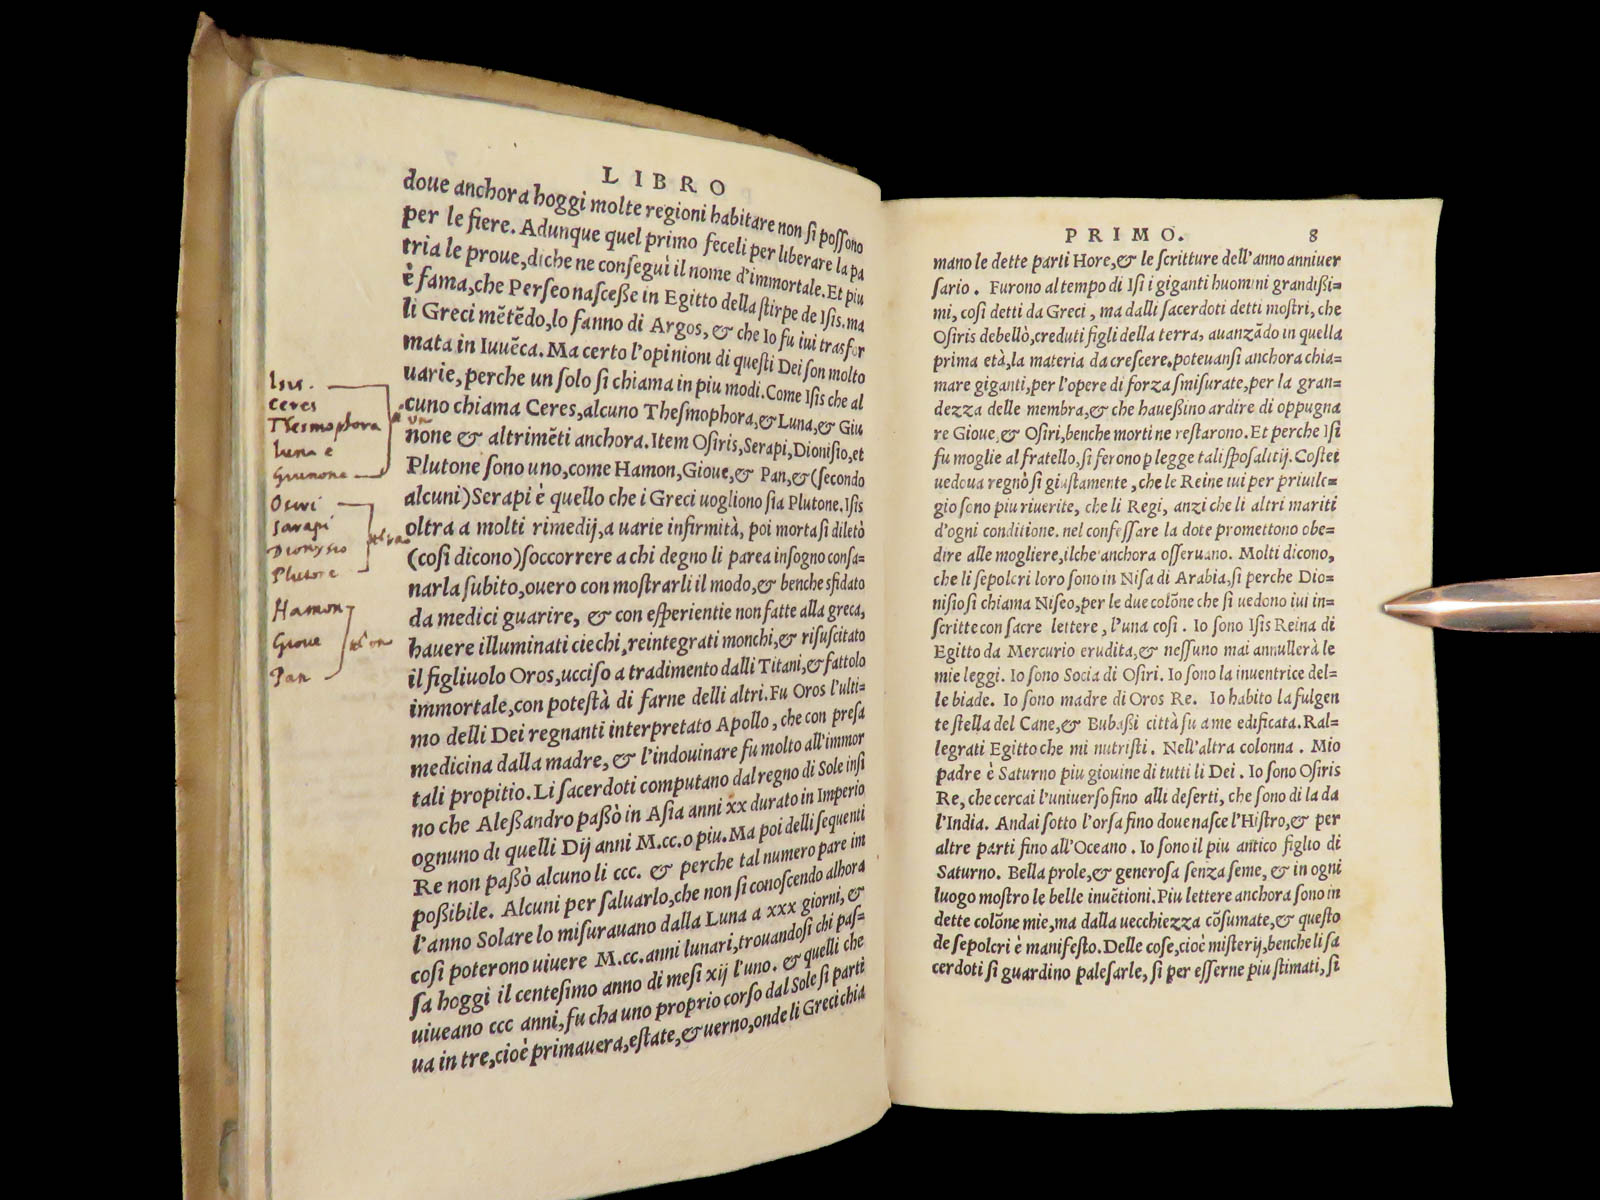 LIBRO
doue anchora hoggi molte regioni habitare non ſi poſſono
per le fiere. Adunque quel primo feceli per liberare la pa
tria le proue, di che ne conſeguì il nome d'immortale. Et piu
è fama, che Perſeo naſceße in Egitto della ſtirpe de Iſis. ma
li Greci mẽtẽdo, lo fanno di Argos, & che Io fu iui trasfor
mata in Iuuẽca. Ma certo l'opinioni di queſti Dei ſon molto
uarie, perche un ſolo ſi chiama in piu modi. Come Iſis che al
cuno chiama Ceres, alcuno Theſmophora, & Luna, & Giu
none & altrimẽti anchora. Item Oſiris, Serapi, Dioniſio, et
Plutone ſono uno, come Hamon, Gioue, & Pan, & (ſecondo
alcuni) Serapi è quello che i Greci uogliono ſia Plutone. Iſis
oltra a molti rimedij, a uarie infirmità, poi morta ſi diletò
(coſi dicono) ſoccorrere a chi degno li parea in ſogno conſa=
narla ſubito, ouero con moſtrarli il modo, & benche sfidato
da medici guarire, & con eſperientie non fatte alla greca,
hauere illuminati ciechi, reintegrati monchi, & riſuſcitato
il figliuolo Oros, ucciſo a tradimento dalli Titani, & fattolo
immortale, con poteſtà di farne delli altri. Fu Oros l'ulti=
mo delli Dei regnanti interpretato Apollo, che con preſa
medicina dalla madre, & l'indouinare fu molto all'immor
tali propitio. Li ſacerdoti computano dal regno di Sole inſi
no che Aleßandro paßò in Aſia anni xx durato in Imperio
ognuno di quelli Dij anni M.cc. o piu. Ma poi delli ſequenti
Re non paßò alcuno li ccc. & perche tal numero pare im
poßibile. Alcuni per ſaluarlo, che non ſi conoſcendo alhora
l'anno Solare lo miſurauano dalla Luna a xxx giorni, &
coſi poterono uiuere M.cc. anni lunari, trouandoſi chi paſ=
ſa hoggi il centeſimo anno di meſi xij l'uno. & quelli che
uiueano ccc anni, fu cha uno proprio corſo dal Sole ſi parti
ua in tre, cioè primauera, eſtate, & uerno, onde li Greci chia
Isis.
Ceres
Thesmophora
luna e
Giunone
un
Osiri
Sarapi
Dionysio
Plutone
Hamon
Gioue
Pan
PRIMO. 8
mano le dette parti Hore, & le ſcritture dell'anno anniuer
ſario. Furono al tempo di Iſi i giganti huomini grandißi=
mi, coſi detti da Greci, ma dalli ſacerdoti detti moſtri, che
Oſiris debellò, creduti figli della terra, auanzãdo in quella
prima età, la materia da creſcere. poteuanſi anchora chia=
mare giganti, per l'opere di forza ſmiſurate, per la gran=
dezza delle membra, & che haueßino ardire di oppugna
re Gioue, & Oſiri, benche morti ne reſtarono. Et perche Iſi
fu moglie al fratello, ſi ferono p legge tali ſpoſalitij. Coſtei
uedoua regnò ſi giuſtamente, che le Reine iui per priuile=
gio ſono piu riuerite, che li Regi, anzi che li altri mariti
d'ogni conditione. nel confeſſare la dote promettono obe=
dire alle mogliere, ilche anchora oſſeruano. Molti dicono,
che li ſepolcri loro ſono in Niſa di Arabia, ſi perche Dio=
niſio ſi chiama Niſeo, per le due colõne che ſi uedono iui in=
ſcritte con ſacre lettere, l'una coſi. Io ſono Iſis Reina di
Egitto da Mercurio erudita, & neſſuno mai annullerà le
mie leggi. Io ſono Socia di Oſiri. Io ſono la inuentrice del=
le biade. Io ſono madre di Oros Re. Io habito la fulgen
te ſtella del Cane, & Bubaßi città ſu a me edificata. Ral=
legrati Egitto che mi nutriſti. Nell'altra colonna. Mio
padre è Saturno piu giouine di tutti li Dei. Io ſono Oſiris
Re, che cercai l'uniuerſo fino alli deſerti, che ſono di la da
l'India. Andai ſotto l'orſa fino doue naſce l'Hiſtro, & per
altre parti fino all'Oceano. Io ſono il piu antico figlio di
Saturno. Bella prole, & generoſa ſenza ſeme, & in ogni
luogo moſtro le belle inuẽtioni. Piu lettere anchora ſono in
dette colõne mie, ma dalla uecchiezza cõſumate, & queſto
de ſepolcri è manifeſto. Delle coſe, cioè miſterij, benche li ſa
cerdoti ſi guardino paleſarle, ſi per eſſerne piu ſtimati, ſi